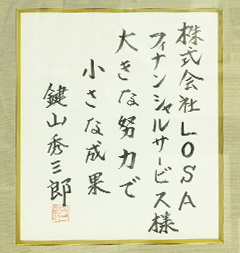 株式会社LOSA
フィナンシャルサービス様
大きな努力で
小さな成果
鍵山秀三郎